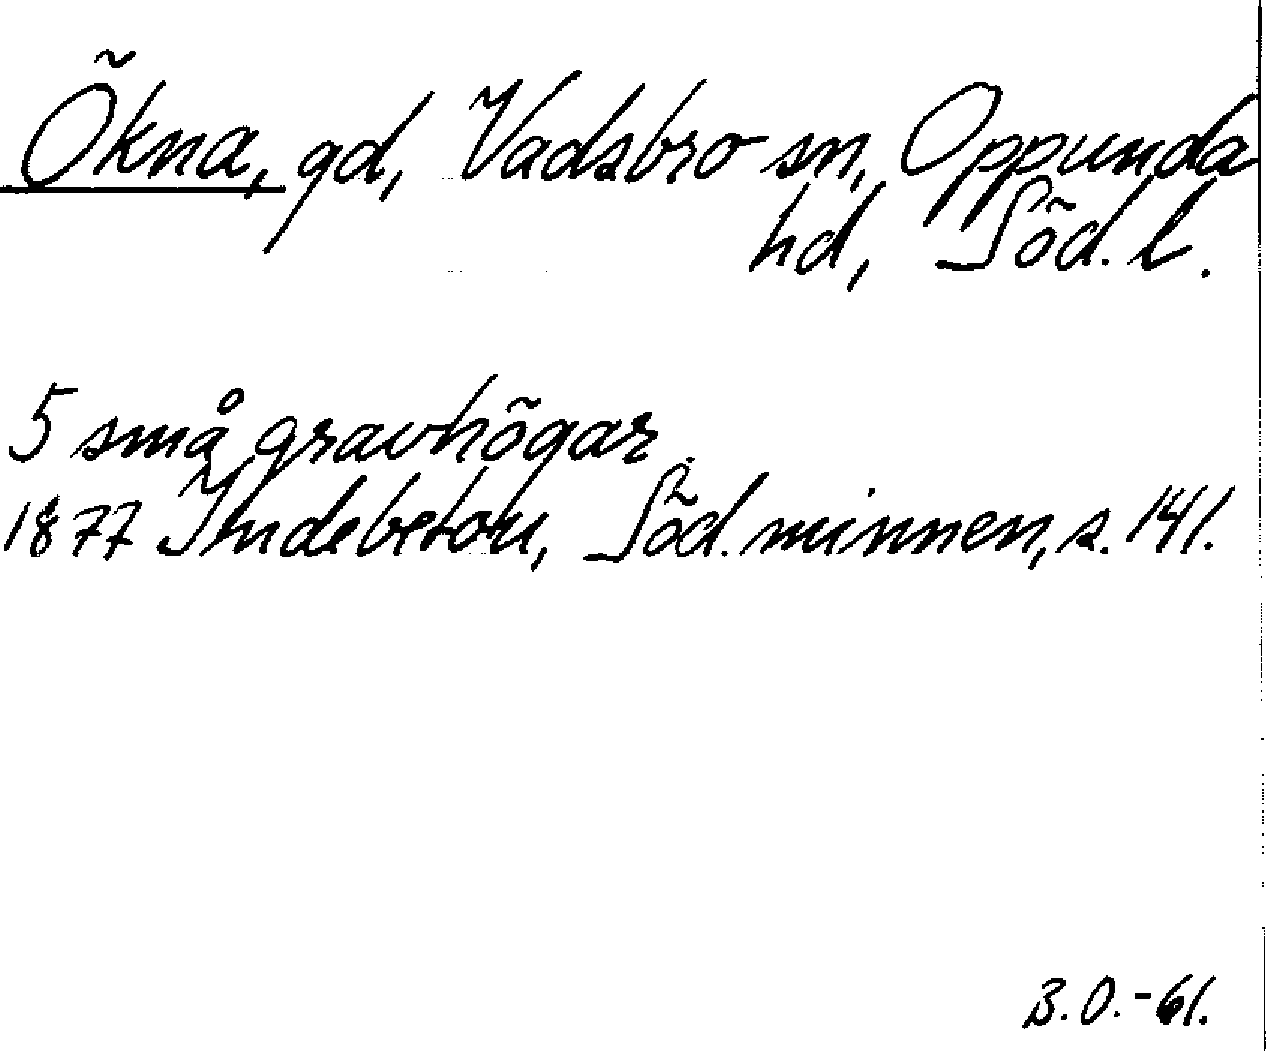 Ökna, gd, Vadsbro sn, Oppunda
hd, Söd. l.
5 små gravhögar.
1877 Indebetou, Söd. minnen, s. 141.
B.O.-61.